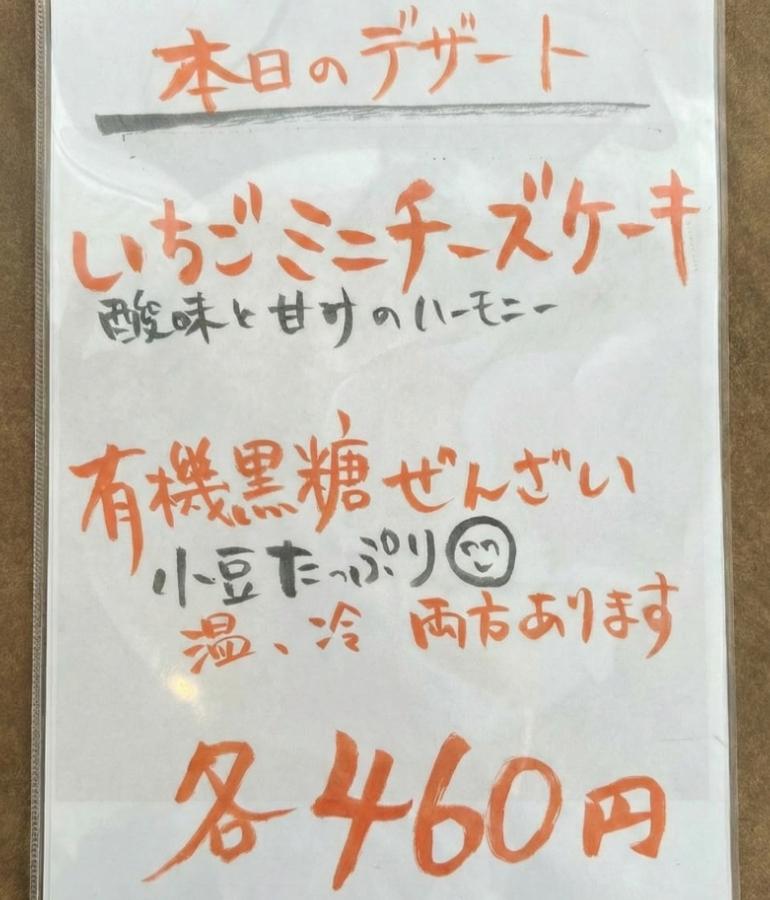 本日のデザート
いちごミニチーズケーキ
酸味と甘みのハーモニー
有機黒糖ぜんざい
小豆たっぷり
温、冷 両方あります
各460円